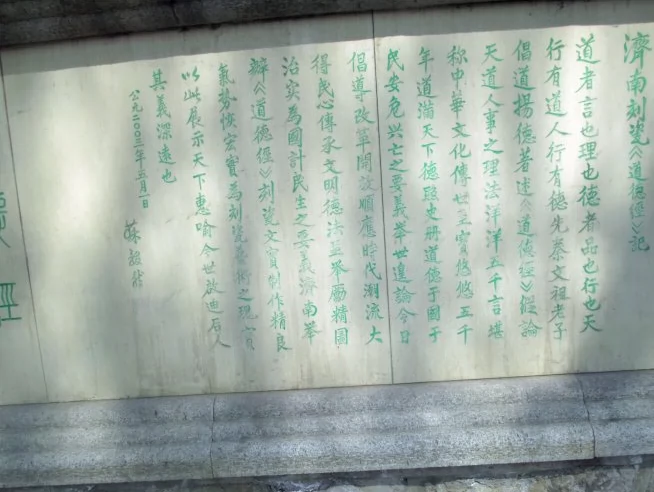 濟南刻瓷《道德經》記
道者言也理也德者品也行也天
行有道人行有德先秦文祖老子
倡道揚德著述《道德經》假論
天道人事之理法洋洋五千言堪
称中華文化傳世至寶悠悠五千
年道滿天下德照史册道德于國于
民安危兴亡之要義舉世遑論今日
倡導改革開放順應時代潮流大
得民心傳承文明德法並舉勵精圖
治实為國計民生之要義濟南舉
辦《道德經》刻瓷文寶制作精良
氣势恢宏實為刻瓷藝術之現實
以此展示天下惠喻今世啟迪后人
其義深遠也
公元二00三年五月一日
經